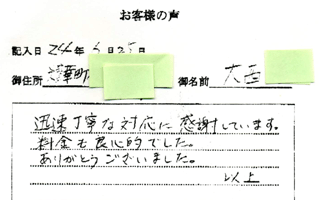 お客様の声
記入日 24年 5月25日
御住所 精華町 御名前 大西
迅速丁寧な対応に感謝しています。
料金も良心的でした。
ありがとうございました。
以上